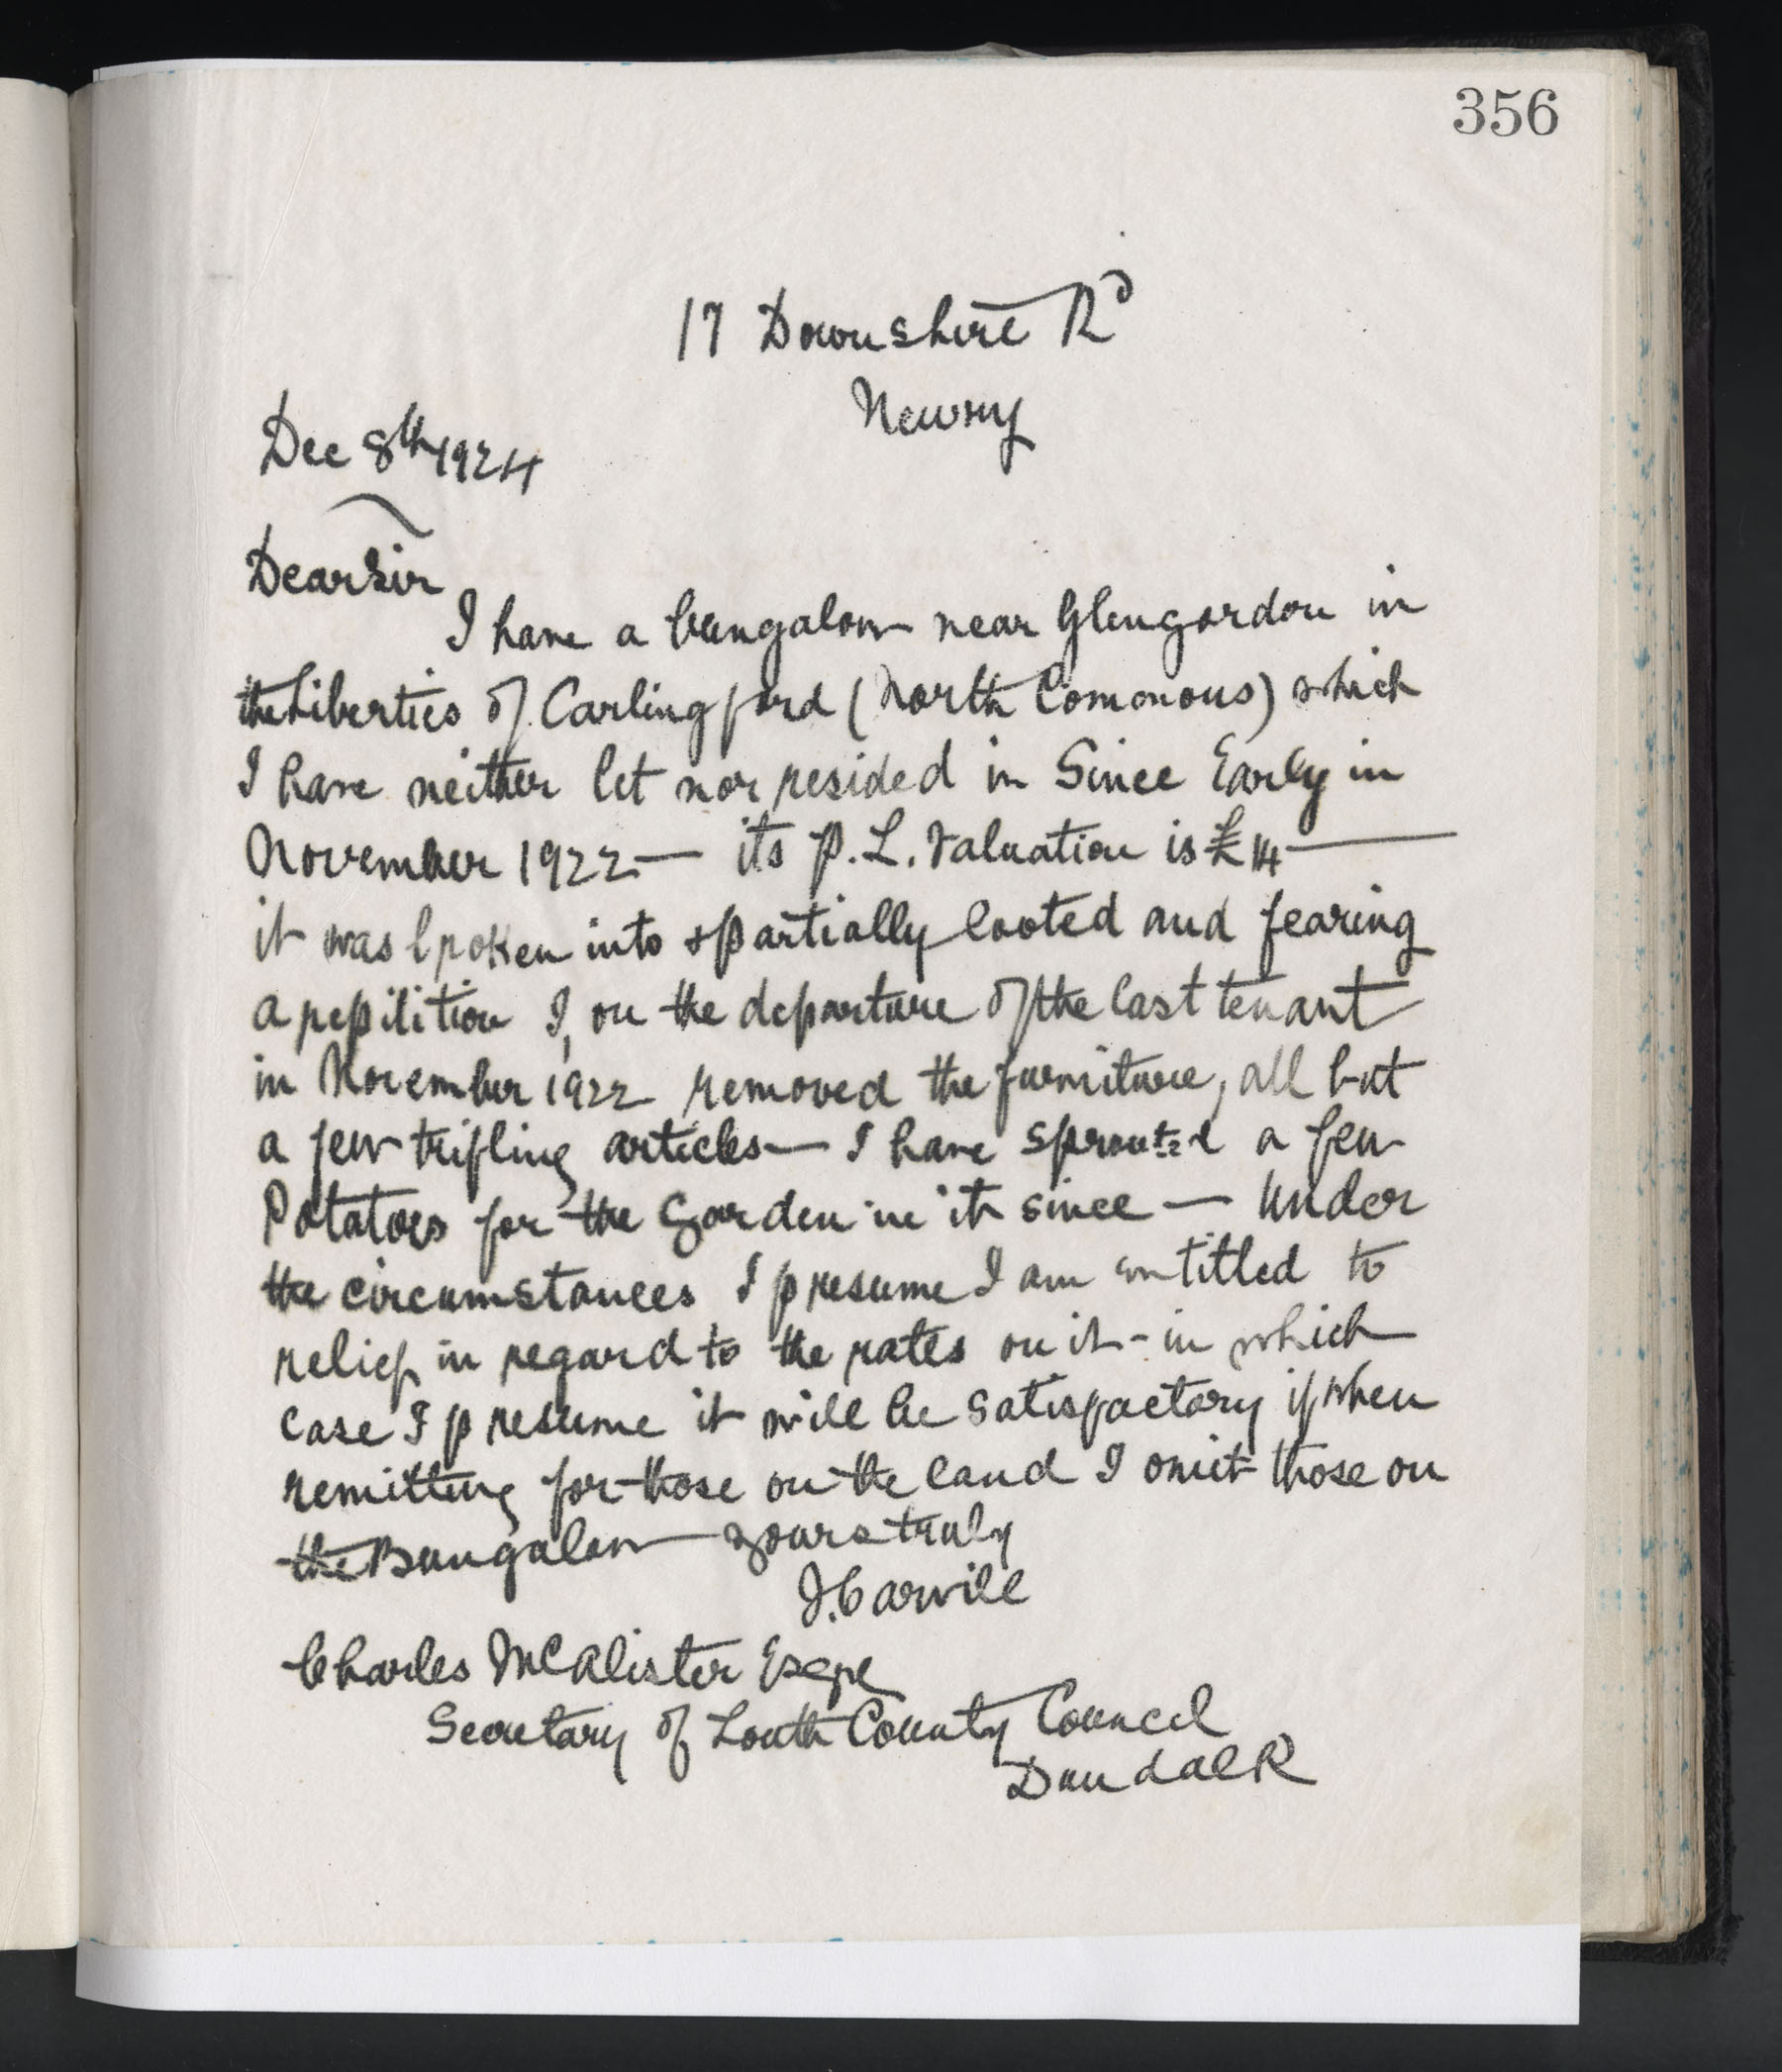 356
17 Downshire Rd
Newry
Dec 8th 1924
Dear Sir
I have a bungalow near Glengordon in
the Liberties of Carlingford (North Commons) which
I have neither let nor resided in Since Early in
November 1922 — its P.L. Valuation is £14 —
it was broken into + partially looted and fearing
a repitition I, on the departure of the last tenant
in November 1922 removed the furniture, all but
a few trifling articles — I have sprouted a few
Potatoes for the Garden in it since — Under
the circumstances I presume I am entitled to
relief in regard to the rates on it - in which
case I presume it will be satisfactory if when
remitting for those on the land I omit those on
the Bungalow yours truly
J. Carvill
Charles McAlister Esqre
Secretary of Louth County Council
Dundalk